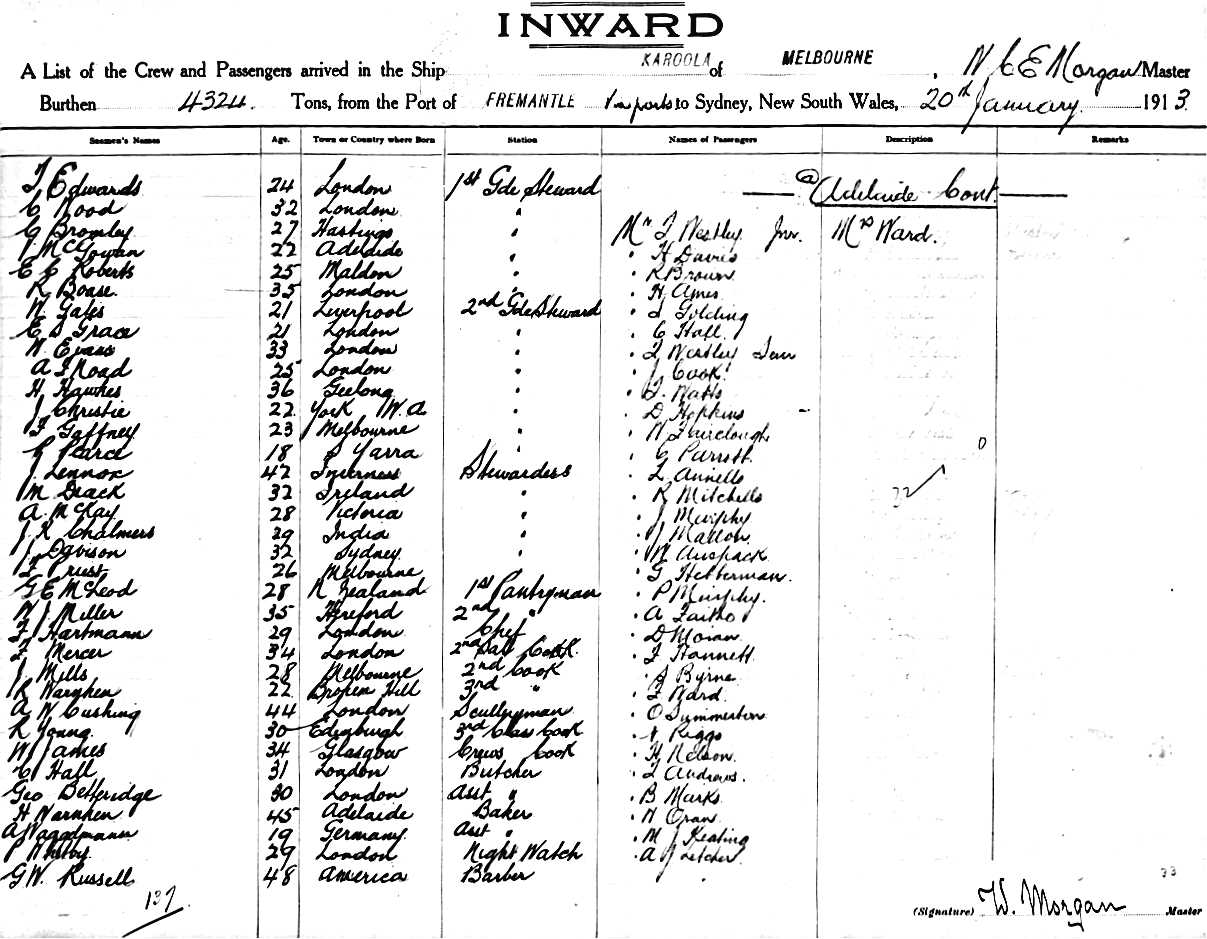 INWARD
A List of the Crew and Passengers arrived in the Ship KAROOLA of MELBOURNE, W C E Morgan Master
Burthen 4324. Tons, from the Port of FREMANTLE Via ports to Sydney, New South Wales, 20th January 1913
Seamen's Names Age. Town or Country where Born Station Names of Passengers Description Remarks
Edwards 24 London 1st Gde Steward @ Adelaide Cont.
C Wood 32 London "
Bromley 27 Hastings " Mr F Westley Jnr. Mrs Ward.
McGowan 22 Adelaide " " H Davies
E C Roberts 25 Maldon " " R Brown
R Boase. 35 London " " H Ames
W Gates 21 Liverpool 2nd Gde Steward " Golding
E S Grace 21 London " " C Hall.
W Evans 33 London " " F Westley Sen
A Road 25 London " " J Cook
H Hawkes 36 Geelong " " Watts
J Christie 22 York W.A " " D Hopkins
F Gaffney 23 Melbourne " " W Fairclough
Pearce 18 S Yarra " " C Parrott.
J Lennox 42 Inverness Stewardess " Annells
M Deack 32 Ireland " " R Mitchells
A McKay 28 Victoria " " J Murphy
J K Chalmers 29 India " " J Mallon.
J Davison 32 Sydney " " Auspack
Prust 26 Melbourne " " G Hefferman.
G E McLeod 28 N Zealand 1st Pantryman " P Murphy.
W J Miller 35 Hereford 2nd " " A
F Hartmann 29 London Chef " D Moran.
Mercer 34 London 2nd Cook. " F Hannett
J Mills 28 Melbourne 2nd Cook " Byrne
R Warnken 22 Broken Hill 3rd " " Ward.
A W Cushing 44 London Scullyman " O Summerton
R Young. 30 Edinburgh 3rd Class Cook " Riggs
W James 34 Glasgow Crews Cook " H Nelson.
C Hall 31 London Butcher " Andrews.
Geo Betteridge 30 London Asst " " B Marks
H Warnken 45 Adelaide Baker " Oran.
A Waggdmann 19 Germany. Asst " " M J Keating
P 29 London Night Watch " A Letcher
G W. Russell 48 America Barber
137
33
(Signature) W. Morgan Master